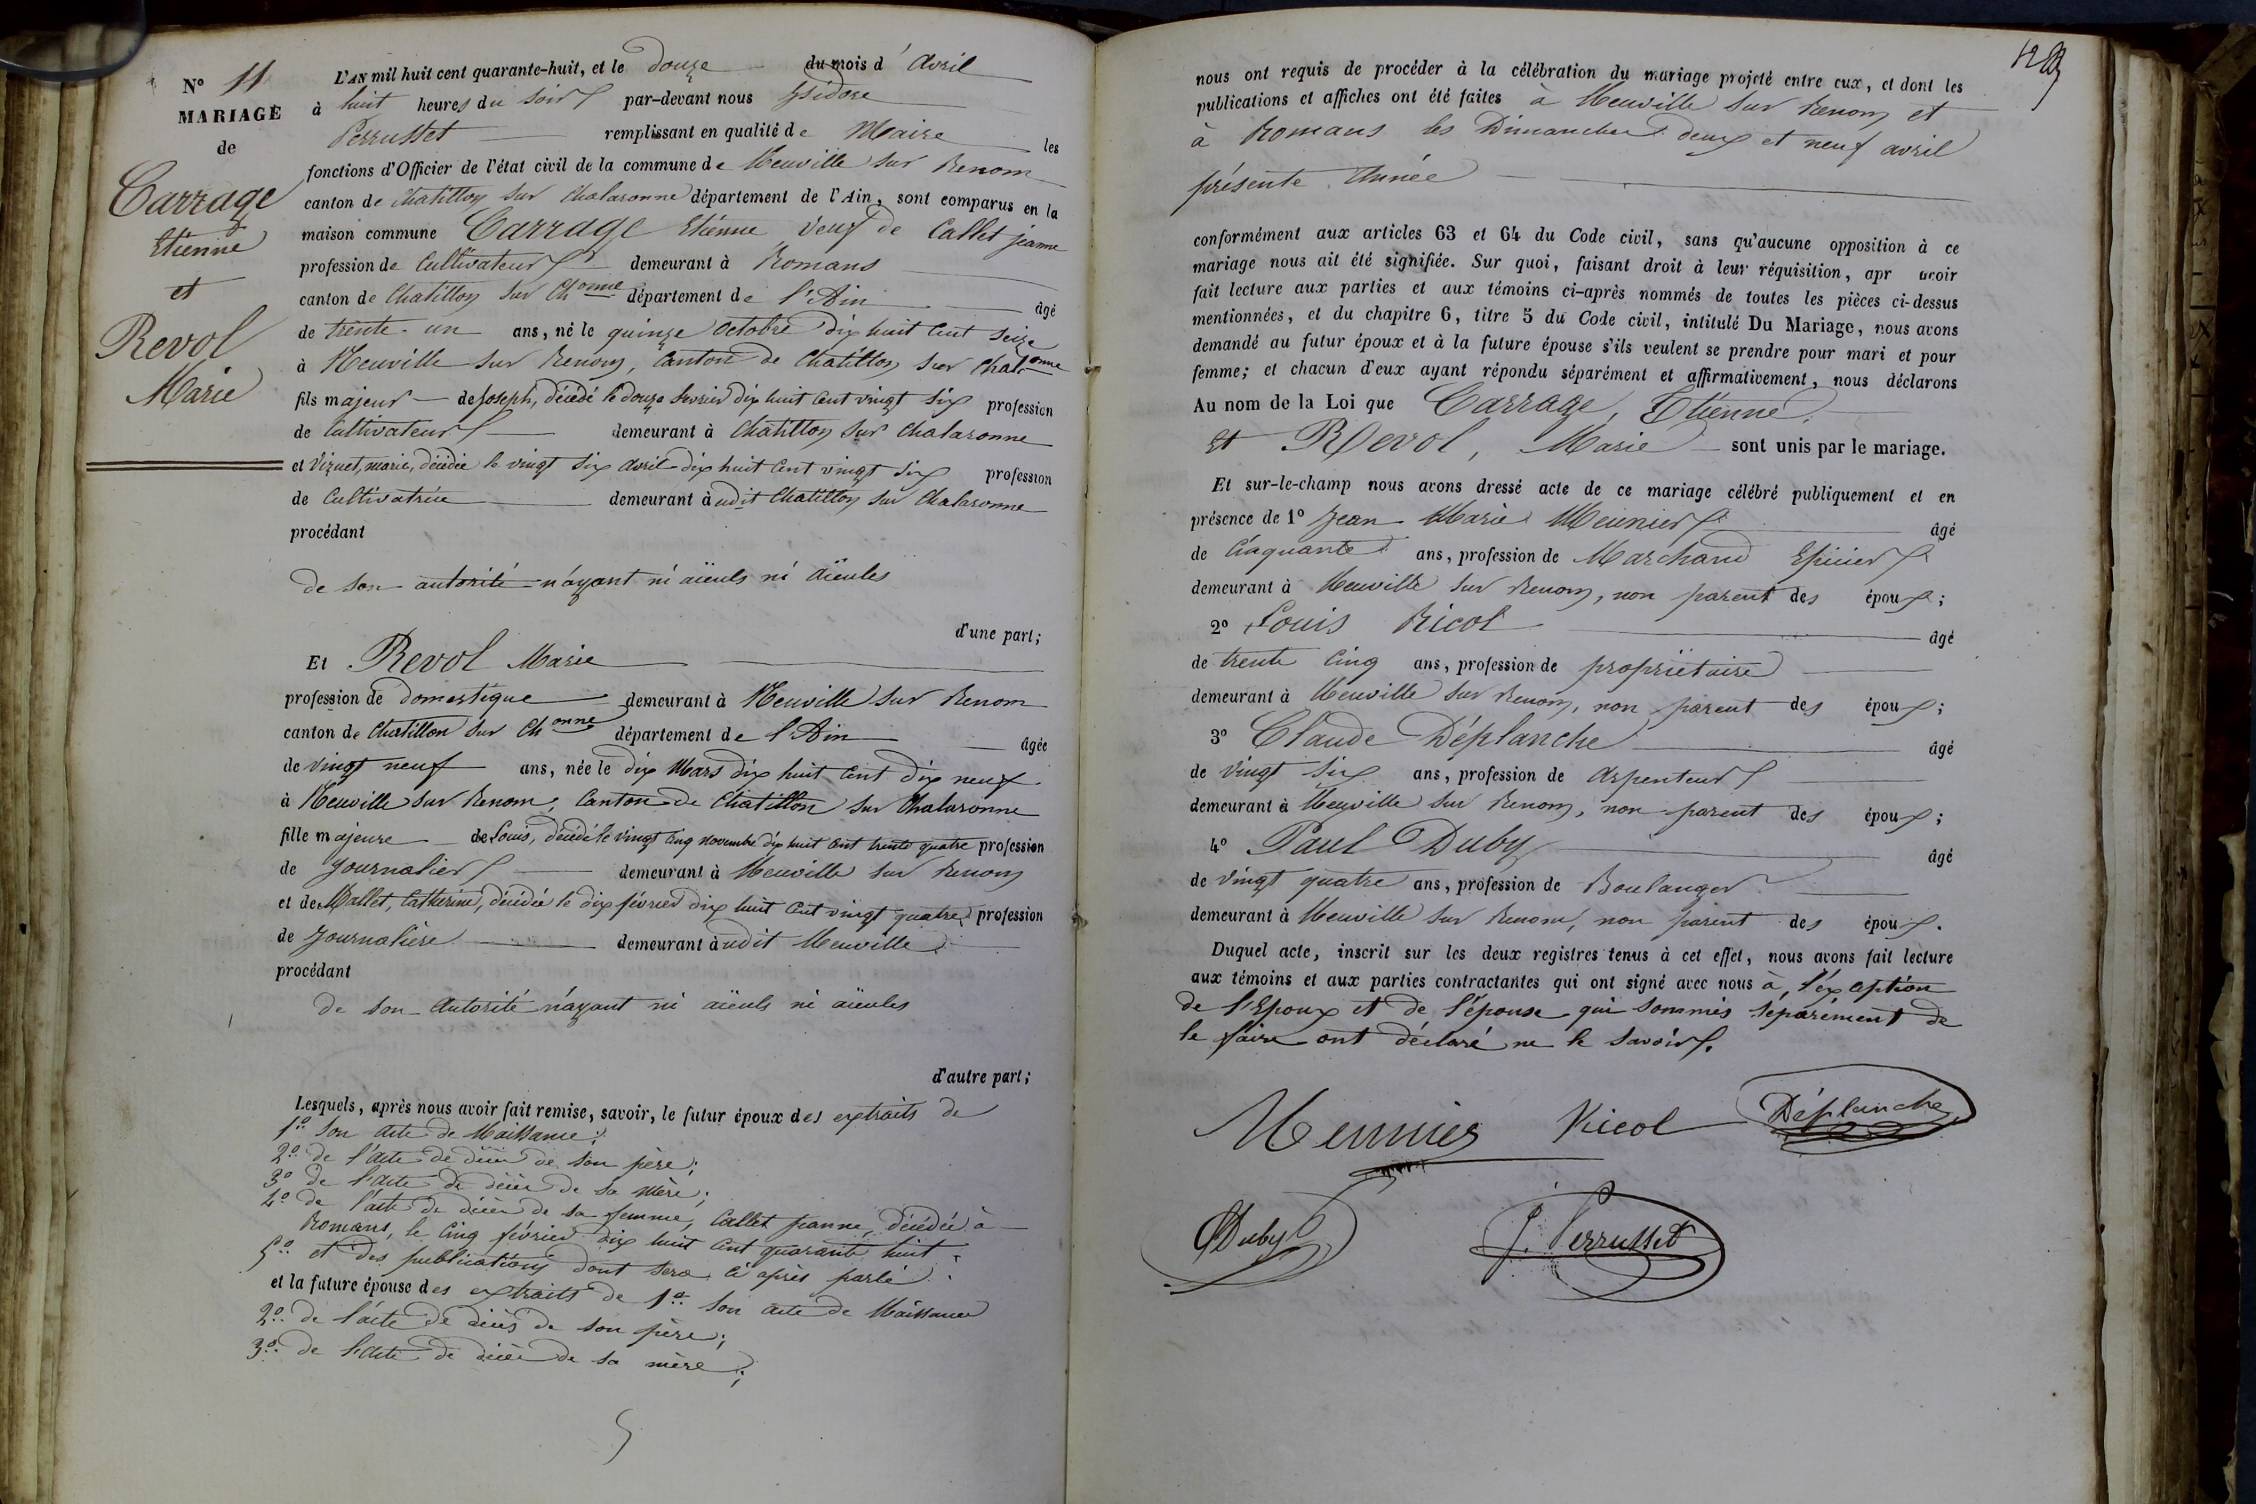 N° 11
MARIAGE
de
Carrage
Etienne
et
Revol
Marie
L'AN mil huit cent quarante-huit, et le douze du mois d'avril
à huit heures du soir par-devant nous Ysidore
Perrusset remplissant en qualité de Maire les
fonctions d'Officier de l'état civil de la commune de Neuville sur Renom
canton de Chatillon sur Chalaronne département de l'Ain, sont comparus en la
maison commune Carrage Etienne veuf de Callet jeanne
profession de Cultivateur demeurant à Romans
canton de Chatillon sur Chonne département de l'Ain âgé
de trente-un ans, né le quinze octobre dix huit cent seize
à Neuville sur Renom, canton de Chatillon sur Chalonne
fils majeur de Joseph, décédé le douze fevrier dix huit cent vingt six profession
de Cultivateur demeurant à Chatillon sur Chalaronne
et Vizuet, marie, décédée le vingt six avril dix huit cent vingt six profession
de Cultivatrice demeurant à udit Chatillon sur Chalaronne
procédant
de son autorité n'ayant ni aïeuls ni aïeules
d'une part;
Et Revol Marie
profession de domestique demeurant à Neuville sur Renom
canton de Chatillon sur Chonne département de l'Ain âgée
de vingt neuf ans, née le dix Mars dix huit cent dix neuf
à Neuville sur Renom, Canton de Chatillon sur Chalaronne
fille majeure de Louis, décédé le vingt cinq novembre dix huit cent trente quatre profession
de journalier demeurant à Neuville sur Renom
et de Mallet, Catherine, décédée le dix février dix huit cent vingt quatre profession
de journalière demeurant à udit Neuville
procédant
de son autorité n'ayant ni aïeuls ni aïeules
d'autre part;
Lesquels, après nous avoir fait remise, savoir, le futur époux des extraits de
1° son acte de Naissance;
2° de l'acte de décès de son père;
3° de l'acte de décès de sa mère;
4° de l'acte de décès de sa femme, Callet jeanne, décédée à
Romans, le cinq février dix huit cent quarante huit;
5° et des publications dont sera ci après parlé;
et la future épouse des extraits de 1° son acte de Naissance
2° de l'acte de décès de son père;
3° de l'acte de décès de sa mère;
nous ont requis de procéder à la célébration du mariage projeté entre eux, et dont les
publications et affiches ont été faites à Neuville sur Renom et
à Romans les Dimanches deux et neuf avril
présente Année
conformément aux articles 63 et 64 du Code civil, sans qu'aucune opposition à ce
mariage nous ait été signifiée. Sur quoi, faisant droit à leur réquisition, apr avoir
fait lecture aux parties et aux témoins ci-après nommés de toutes les pièces ci-dessus
mentionnées, et du chapitre 6, titre 5 du Code civil, intitulé Du Mariage, nous avons
demandé au futur époux et à la future épouse s'ils veulent se prendre pour mari et pour
femme; et chacun d'eux ayant répondu séparément et affirmativement, nous déclarons
Au nom de la Loi que Carrage, Etienne
Et Revol, Marie sont unis par le mariage.
Et sur-le-champ nous avons dressé acte de ce mariage célébré publiquement et en
présence de 1° Jean Marie Meunier âgé
de Cinquante ans, profession de Marchand Epicier
demeurant à Neuville sur Renom, non parent des époux;
2° Louis Ricol âgé
de trente cinq ans, profession de propriétaire
demeurant à Neuville sur Renom, non parent des époux;
3° Claude Déplanche âgé
de vingt six ans, profession de arpenteur
demeurant à Neuville sur Renom, non parent des époux;
4° Paul Duby âgé
de vingt quatre ans, profession de Boulanger
demeurant à Neuville sur Renom, non parent des époux.
Duquel acte, inscrit sur les deux registres tenus à cet effet, nous avons fait lecture
aux témoins et aux parties contractantes qui ont signé avec nous à l'exception
de l'Epoux et de l'épouse qui sommés séparément de
le faire ont déclaré ne le savoir.
Meunier Ricol Déplanche
Duby J. Perrusset